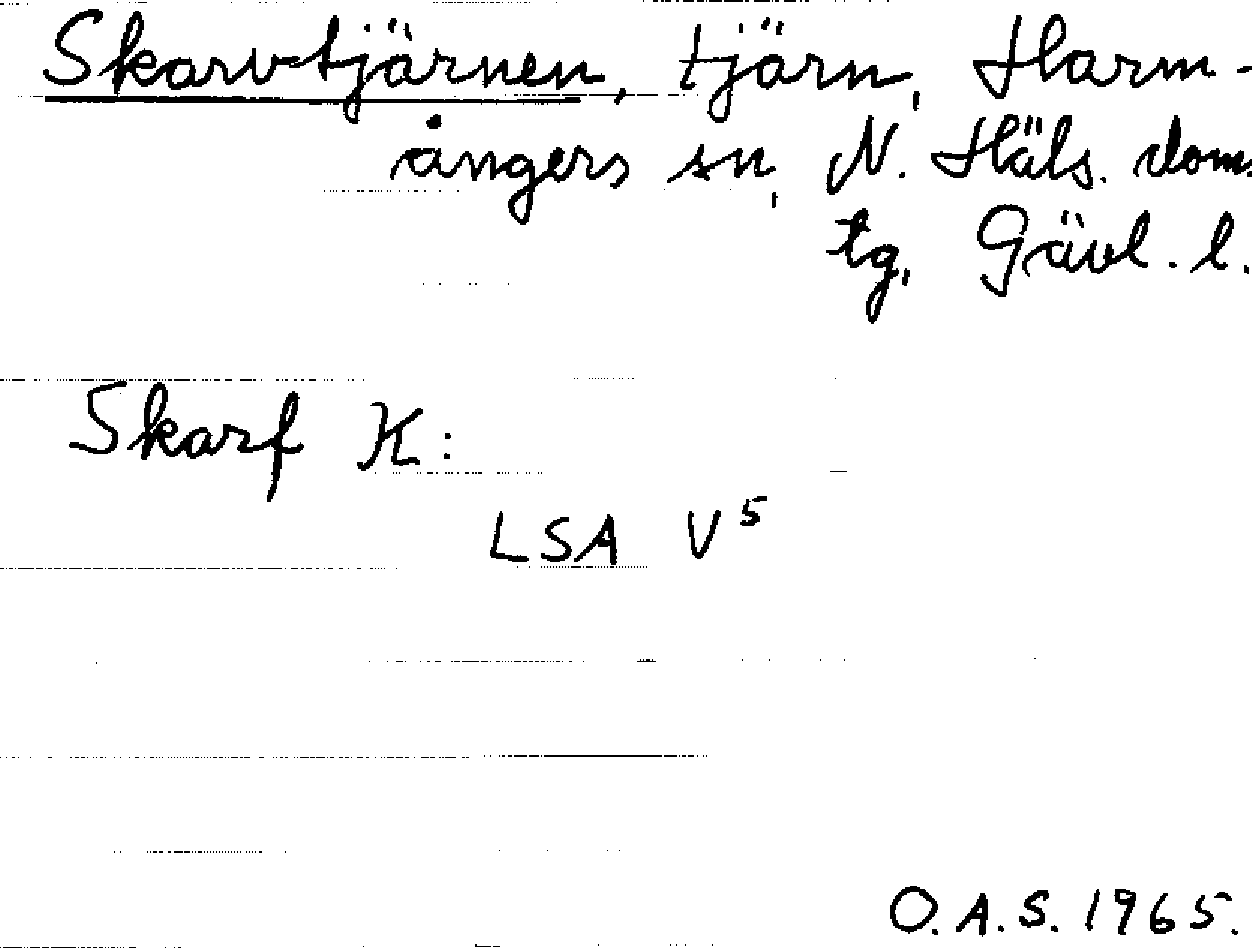 Skarvtjärnen, tjärn, Harm-
ångers sn, N. Häls. doms.
tg, Gävl. l.
Skarf K:
LSA V⁵
O.A.S. 1965.